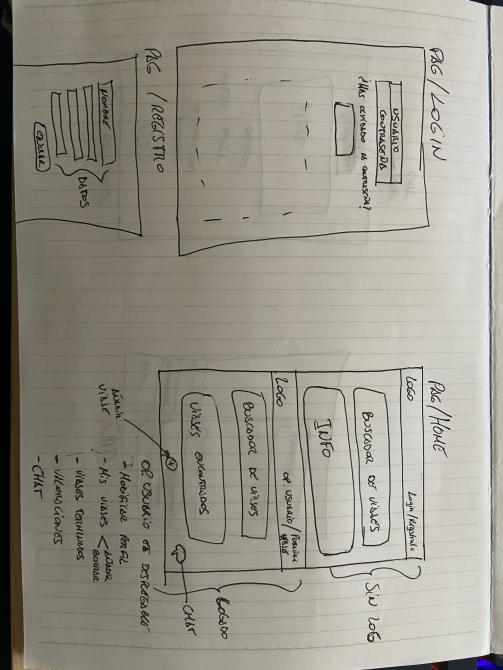 PAG/LOGIN
USUARIO
CONTRASEÑA
¿HAS OLVIDADO LA CONTRASEÑA?
PAG /REGISTRO
NOMBRE
DATOS
ENVIAR
PAG/HOME
LOGO Login/Registrate
BUSCADOR DE VIAJES
INFO
SIN LOG
LOGO OP. USUARIO/PUBLICAR VIAJE
BUSCADOR DE VIAJES
VIAJES ENCONTRADOS
LOGADO
CHAT
AÑADIR
VIAJE
OP. USUARIO ES DESPLEGABLE
- MODIFICAR PERFIL
- MIS VIAJES < AÑADIR
BORRAR
- VIAJES TERMINADOS
- VALORACIONES
- CHAT